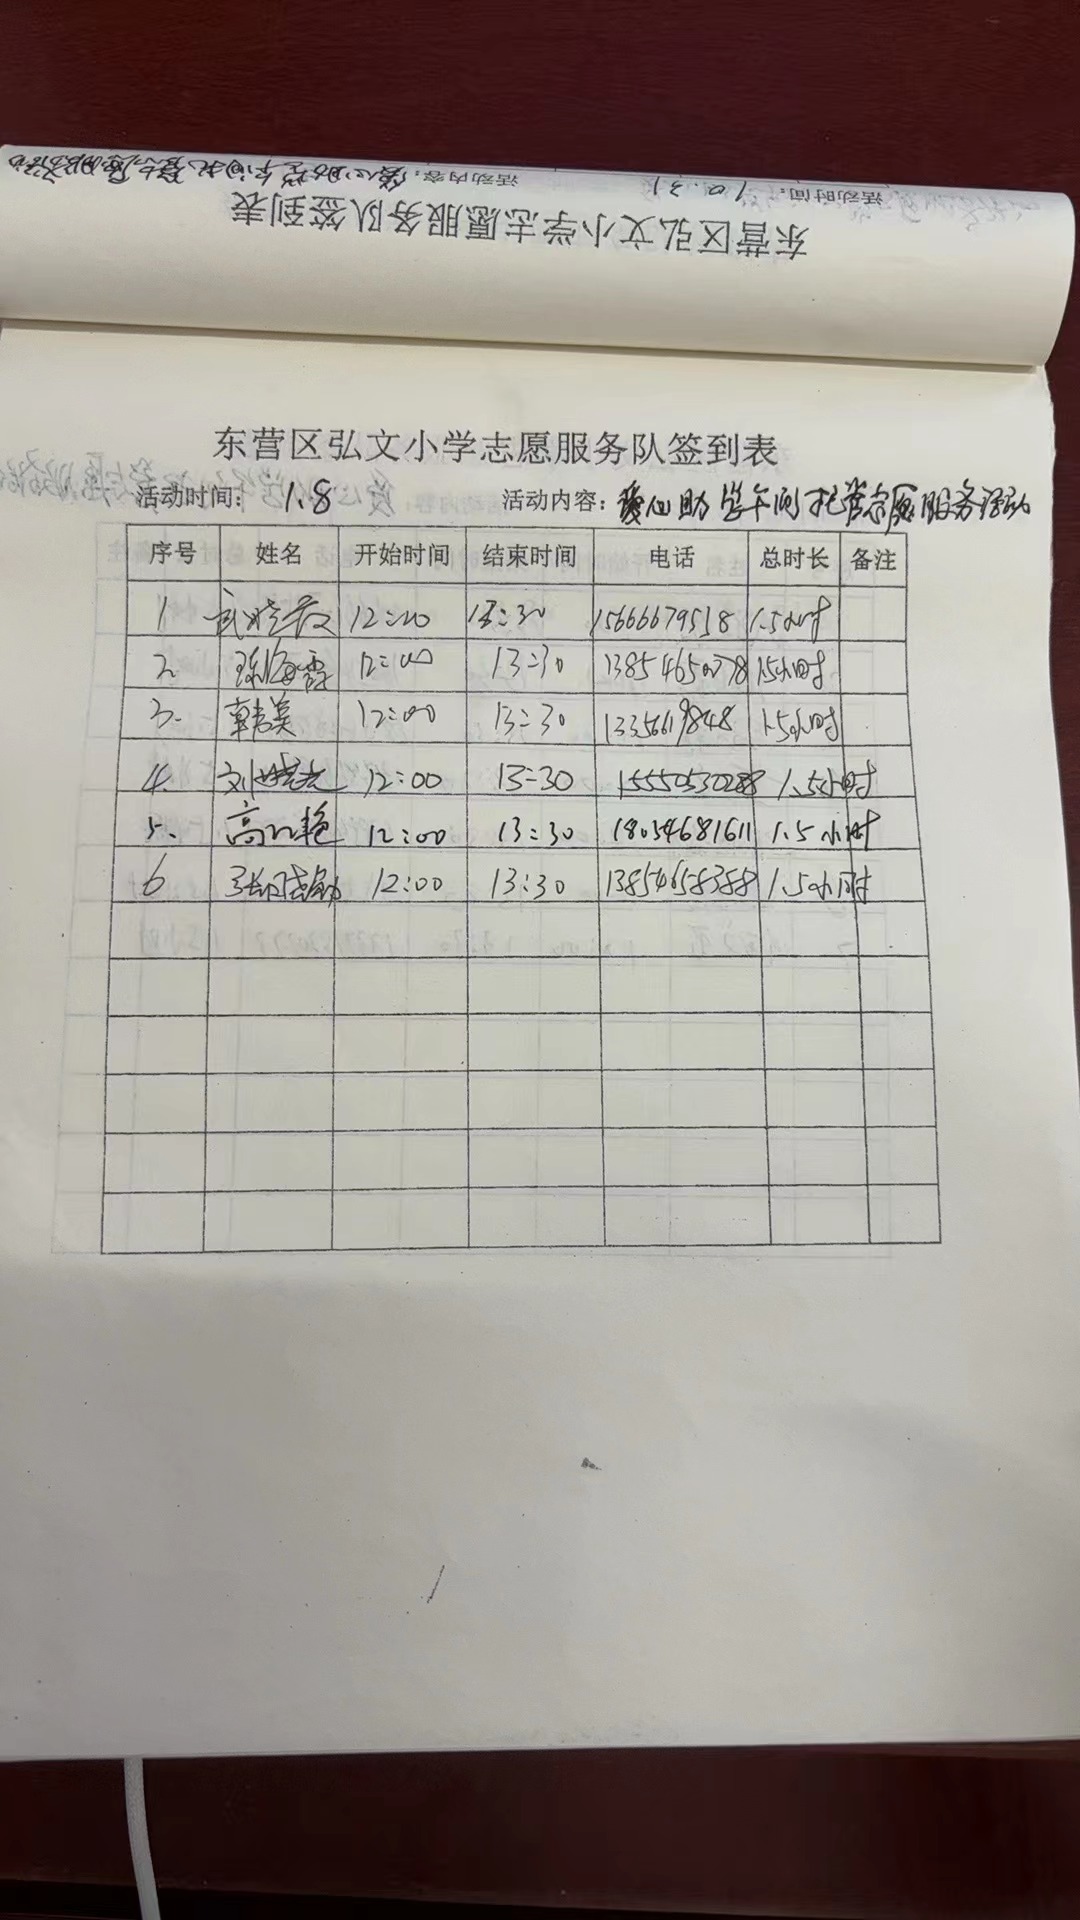 活动时间：10.31 活动内容：爱心助学午间托管志愿服务活动
东营区弘文小学志愿服务队签到表
东营区弘文小学志愿服务队签到表
活动时间： 1.8 活动内容：爱心助学午间托管志愿服务活动
序号 姓名 开始时间 结束时间 电话 总时长 备注
1 武晓 12:00 13:30 15666679518 1.5小时
2 海霞 12:00 13:30 13854650278 1.5小时
3. 韩美 12:00 13:30 1335619848 1.5小时
4. 刘晓光 12:00 13:30 15550530288 1.5小时
5. 高红艳 12:00 13:30 18054681611 1.5小时
6 张 12:00 13:30 13854658388 1.5小时